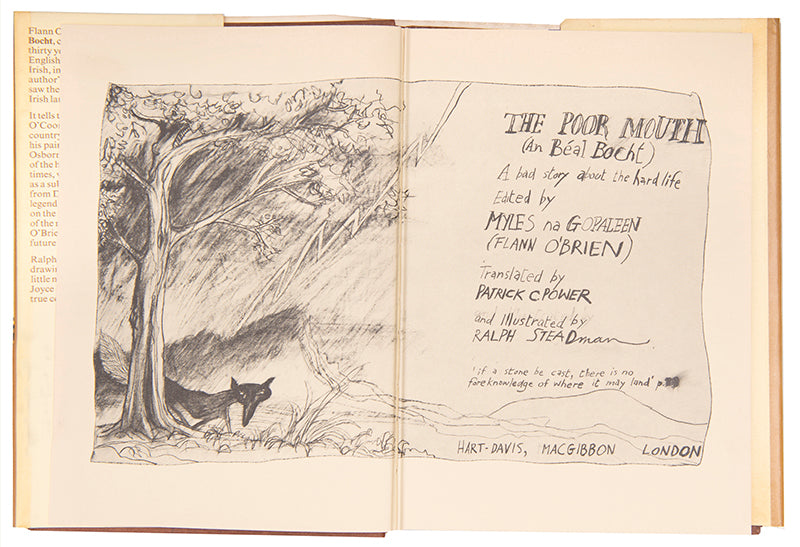 Flann O
Bocht, c
thirty ye
English
Irish, in
author'
saw the
Irish lan
It tells t
O'Coon
country
his pain
Osborn
of the h
times, y
as a sub
from D
legend
on the
of the n
O'Brie
future
Ralph
drawin
little n
Joyce
true co
THE POOR MOUTH
(An Béal Bocht)
A bad story about the hard life
Edited by
MYLES na GOPALEEN
(FLANN O'BRIEN)
Translated by
PATRICK C POWER
and Illustrated by
RALPH STEADman
'if a stone be cast, there is no
foreknowledge of where it may land' p.
HART-DAVIS, MACGIBBON LONDON